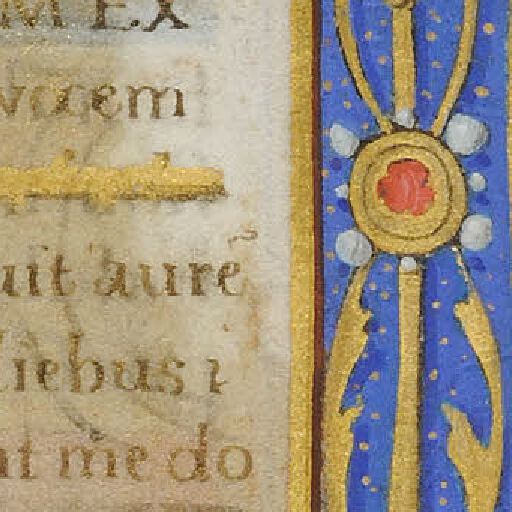 M EX
vocem
uit aurē
diebus i
nt me do